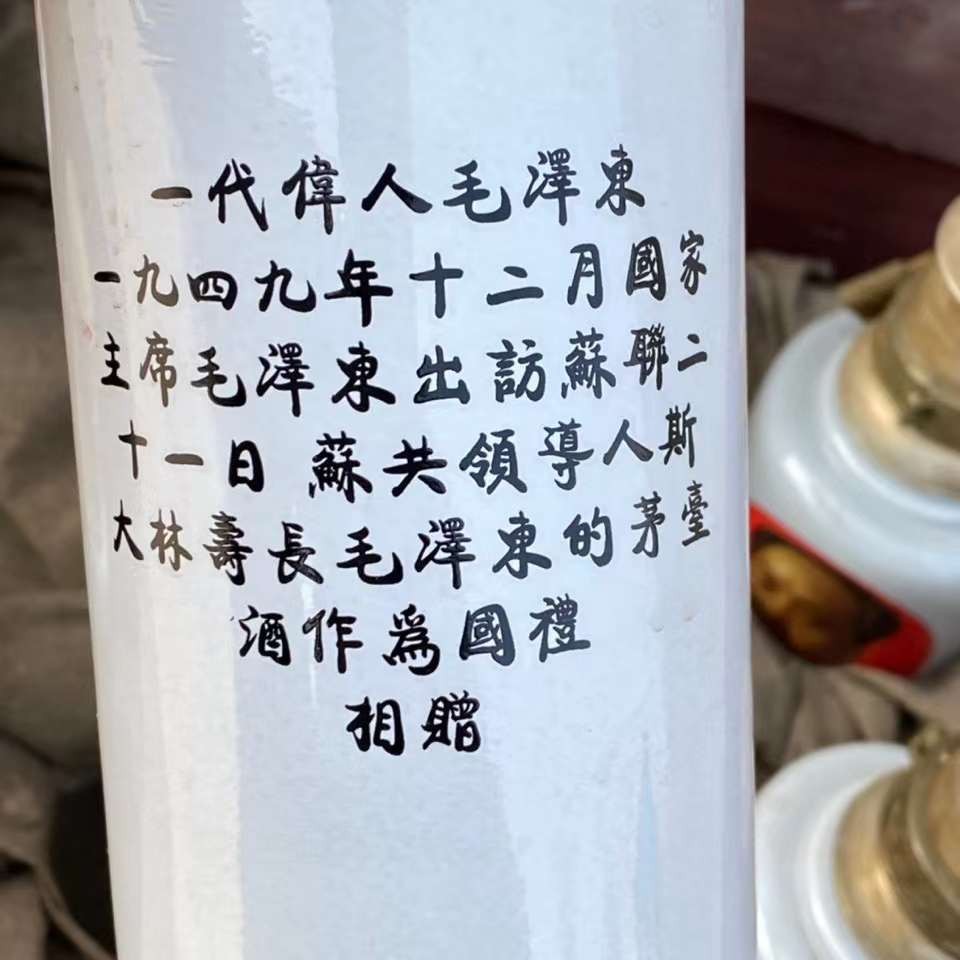 一代偉人毛澤東
一九四九年十二月國家
主席毛澤東出訪蘇聯二
十一日蘇共領導人斯
大林壽長毛澤東的茅臺
酒作為國禮
相贈